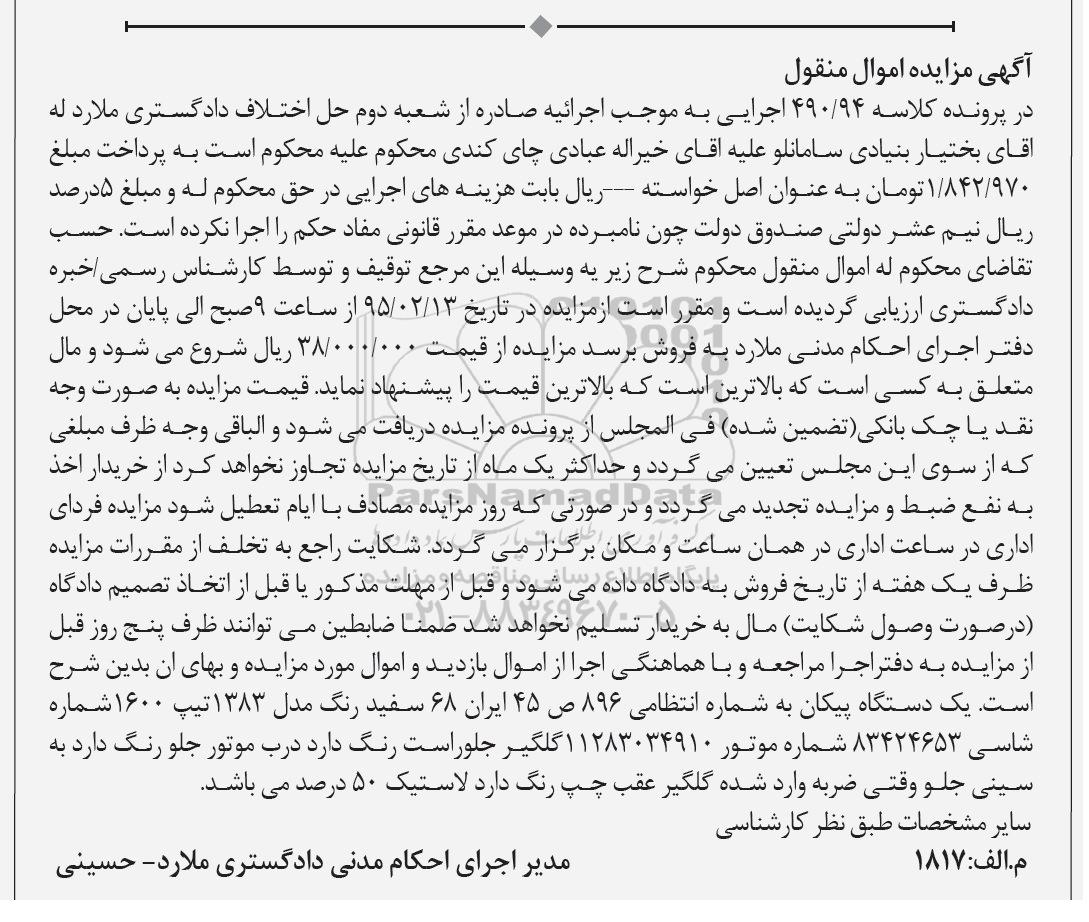 آگهی مزایده اموال منقول
در پرونده کلاسه ۴۹۰/۹۴ اجرایی به موجب اجرائیه صادره از شعبه دوم حل اختلاف دادگستری ملارد له
اقای بختیار بنیادی سامانلو علیه اقای خیراله عبادی چای کندی محکوم علیه محکوم است به پرداخت مبلغ
۱/۸۴۲/۹۷۰تومان به عنوان اصل خواسته ---ریال بابت هزینه های اجرایی در حق محکوم له و مبلغ ۵درصد
ریال نیم عشر دولتی صندوق دولت چون نامبرده در موعد مقرر قانونی مفاد حکم را اجرا نکرده است. حسب
تقاضای محکوم له اموال منقول محکوم شرح زیر یه وسیله این مرجع توقیف و توسط کارشناس رسمی/خبره
دادگستری ارزیابی گردیده است و مقرر است ازمزایده در تاریخ ۹۵/۰۲/۱۳ از ساعت ۹صبح الی پایان در محل
دفتر اجرای احکام مدنی ملارد به فروش برسد مزایده از قیمت ۳۸/۰۰۰/۰۰۰ ریال شروع می شود و مال
متعلق به کسی است که بالاترین است که بالاترین قیمت را پیشنهاد نماید. قیمت مزایده به صورت وجه
نقد یا چک بانکی(تضمین شده) فی المجلس از پرونده مزایده دریافت می شود و الباقی وجه ظرف مبلغی
که از سوی این مجلس تعیین می گردد و حداکثر یک ماه از تاریخ مزایده تجاوز نخواهد کرد از خریدار اخذ
به نفع ضبط و مزایده تجدید می گردد و در صورتی که روز مزایده مصادف با ایام تعطیل شود مزایده فردای
اداری در ساعت اداری در همان ساعت و مکان برگزار می گردد. شکایت راجع به تخلف از مقررات مزایده
ظرف یک هفته از تاریخ فروش به دادگاه داده می شود و قبل از مهلت مذکور یا قبل از اتخاذ تصمیم دادگاه
(درصورت وصول شکایت) مال به خریدار تسلیم نخواهد شد ضمنا ضابطین می توانند ظرف پنج روز قبل
از مزایده به دفتراجرا مراجعه و با هماهنگی اجرا از اموال بازدید و اموال مورد مزایده و بهای ان بدین شرح
است. یک دستگاه پیکان به شماره انتظامی ۸۹۶ ص ۴۵ ایران ۶۸ سفید رنگ مدل ۱۳۸۳تیپ ۱۶۰۰شماره
شاسی ۸۳۴۲۴۶۵۳ شماره موتور ۱۱۲۸۳۰۳۴۹۱۰گلگیر جلوراست رنگ دارد درب موتور جلو رنگ دارد به
سینی جلو وقتی ضربه وارد شده گلگیر عقب چپ رنگ دارد لاستیک ۵۰ درصد می باشد.
سایر مشخصات طبق نظر کارشناسی
م.الف:۱۸۱۷ مدیر اجرای احکام مدنی دادگستری ملارد- حسینی
ParsNamadData
پایگاه اطلاع رسانی مناقصه و مزایده
۰۲۱-۸۸۳۴۹۶۷۰-۵